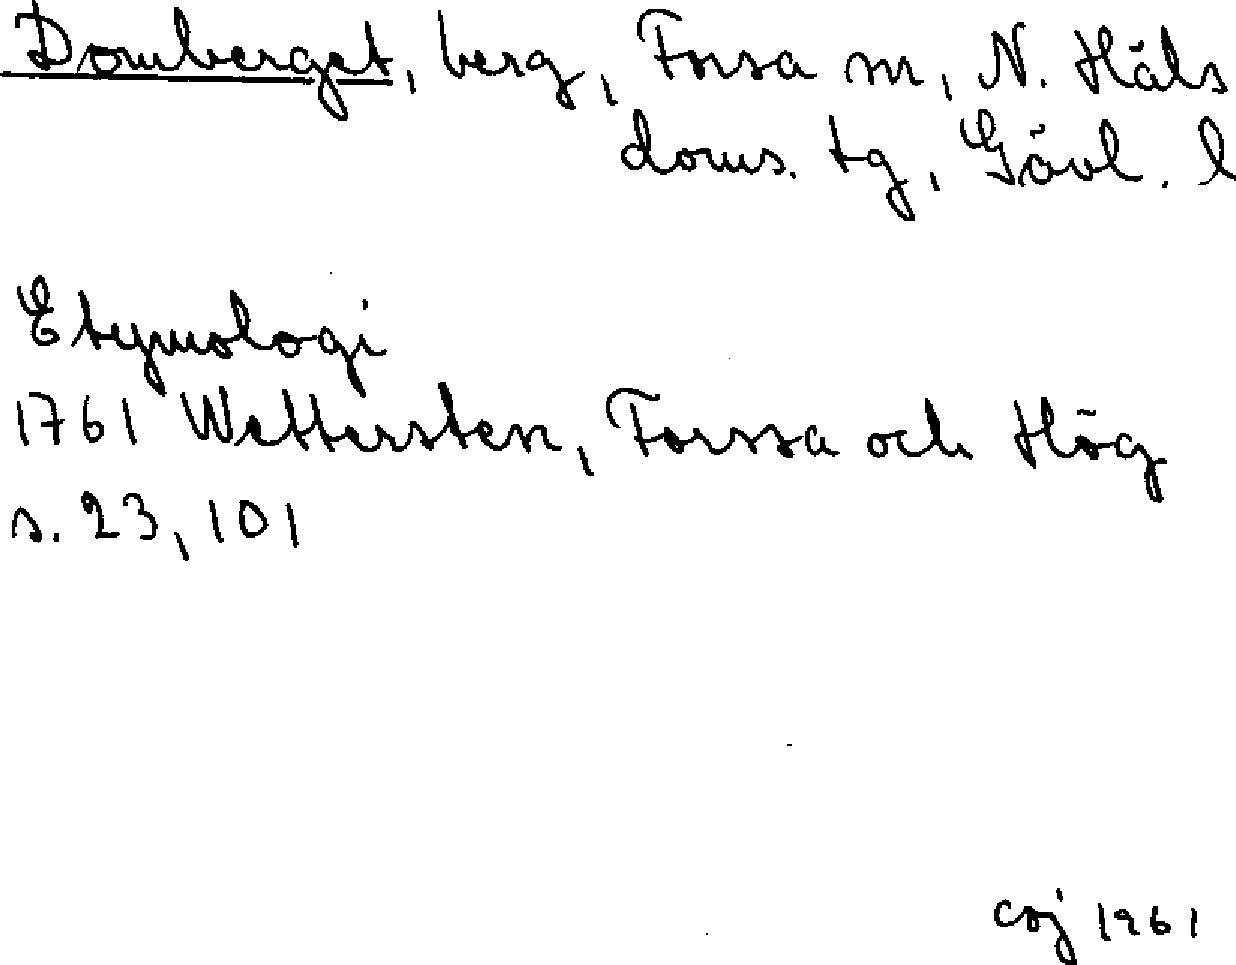 Domberget, berg, Forsa sn, N. Häls
doms. tg, Gävl. l
Etymologi
1761 Wettersten, Forssa och Hög
s. 23, 101
coj 1961